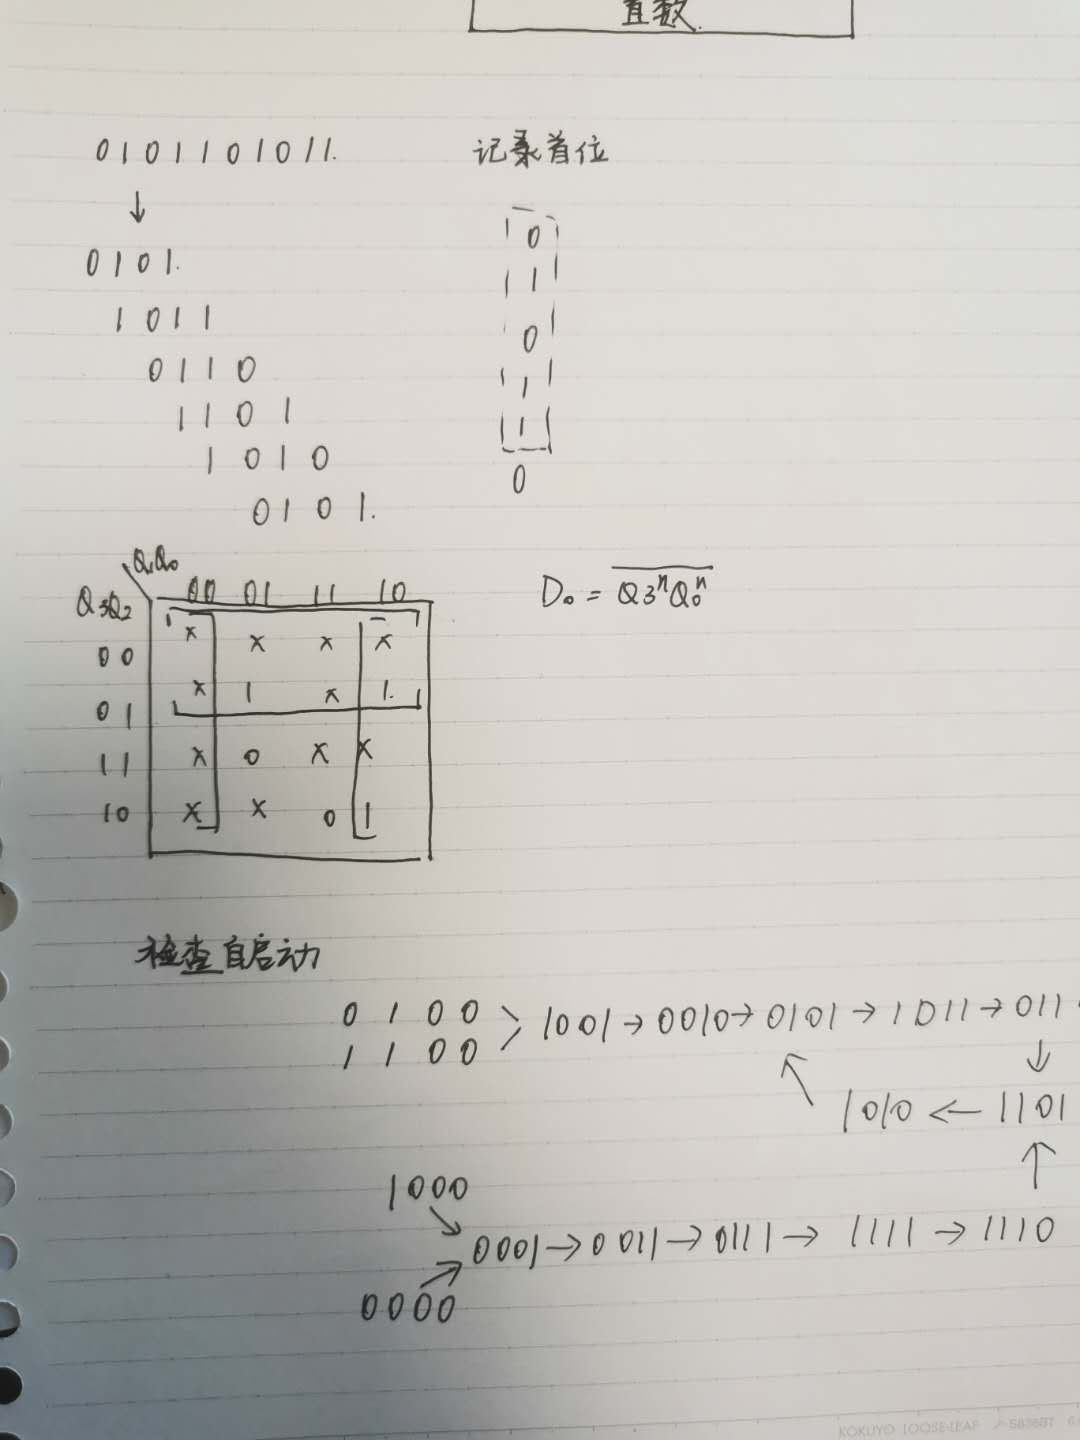 直数
0101101011.
记录首位
↓
0101.
1011
0110
1101
1010
0101.
0
1
0
1
1
0
Q₁Q₀
Q₃Q₂
00 01 11 10
00 × × × ×
01 × 1 × 1.
11 × 0 × ×
10 × × 0 1
D₀ = \overline{Q3ⁿQ₀ⁿ}
检查自启动
0100
1100
> 1001→0010→0101→1011→011
↓
1010 ← 1101
↑
1000
0001→0011→0111→1111→1110
0000
KOKUYO LOOSE-LEAF